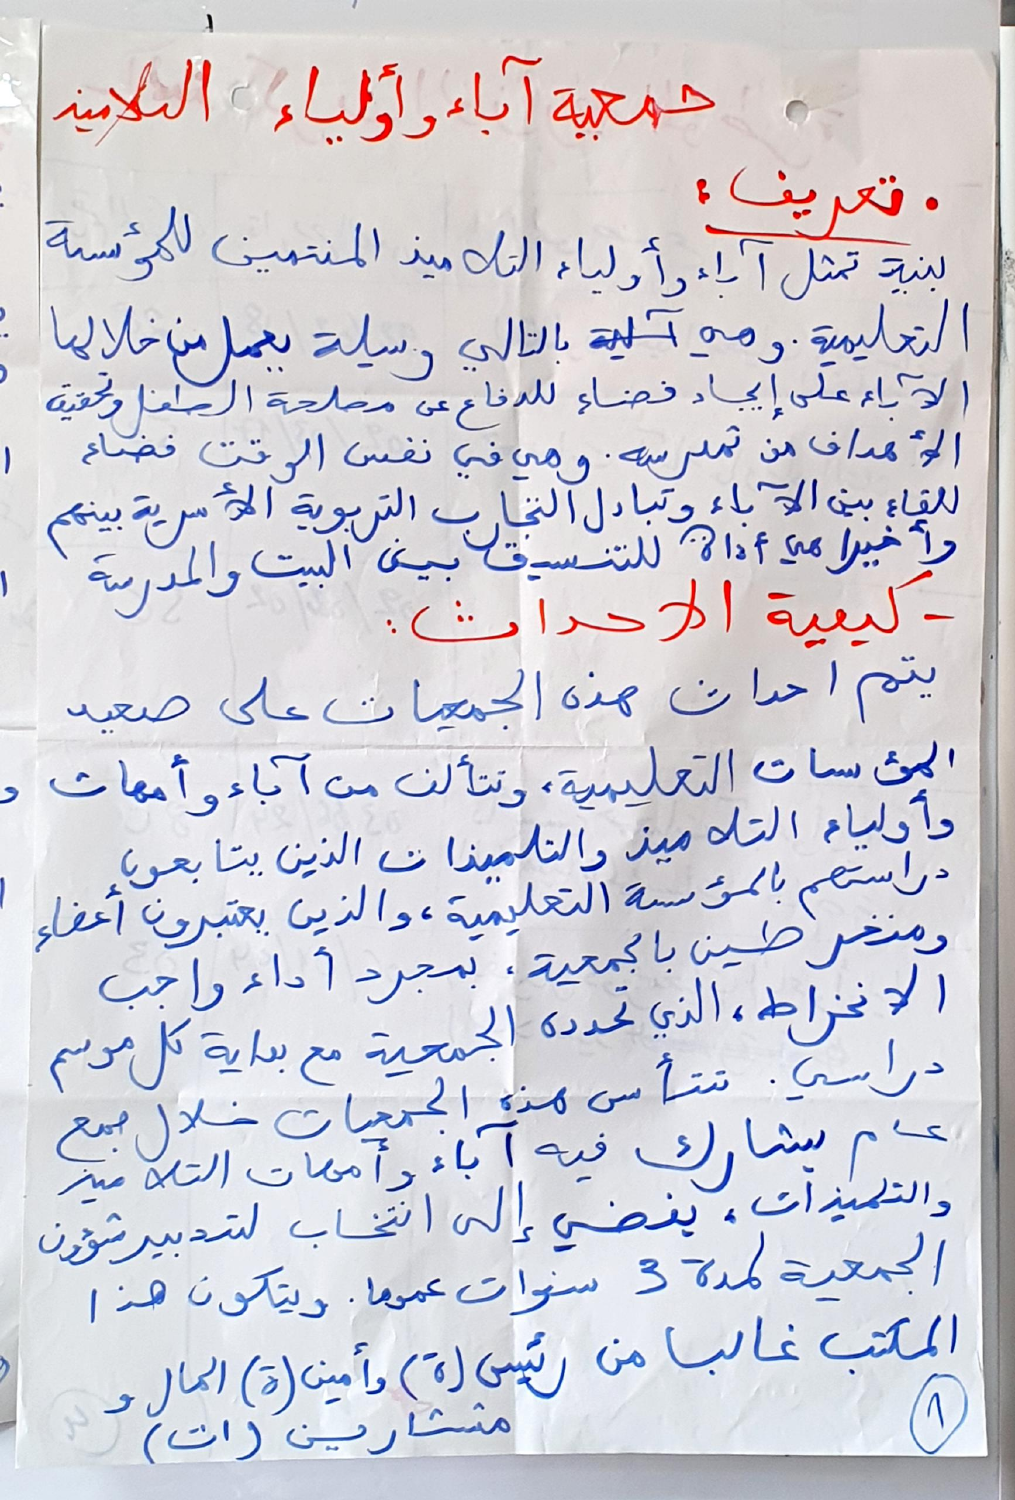 جمعية آباء وأولياء التلاميذ
. تعريف :
بنية تمثل آباء وأولياء التلاميذ المنتمين للمؤسسة
التعليمية. وهي بالتالي وسيلة يعمل من خلالها
الآباء على إيجاد فضاء للدفاع عن مصلحة الطفل وتحقيق
الأهداف من تمدرسه. وهي في نفس الوقت فضاء
للقاء بين الآباء وتبادل التجارب التربوية الأسرية بينهم
وأخيرا هي أداة للتنسيق بين البيت والمدرسة
- كيفية الاحداث :
يتم احداث هذه الجمعيات على صعيد
المؤسسات التعليمية، وتتألف من آباء وأمهات
وأولياء التلاميذ والتلميذات الذين يتابعون
دراستهم بالمؤسسة التعليمية، والذين يعتبرون أعضاء
ومنخرطين بالجمعية، بمجرد أداء واجب
الانخراط، الذي تحدده الجمعية مع بداية كل موسم
دراسي. تتأسس هذه الجمعيات خلال جمع
عام يشارك فيه آباء وأمهات التلاميذ
والتلميذات، يفضي إلى انتخاب لتدبير شؤون
الجمعية لمدة 3 سنوات عموما. ويتكون هذا
المكتب غالبا من رئيس (ة) وأمين (ة) المال و
مستشارين (ات)
1